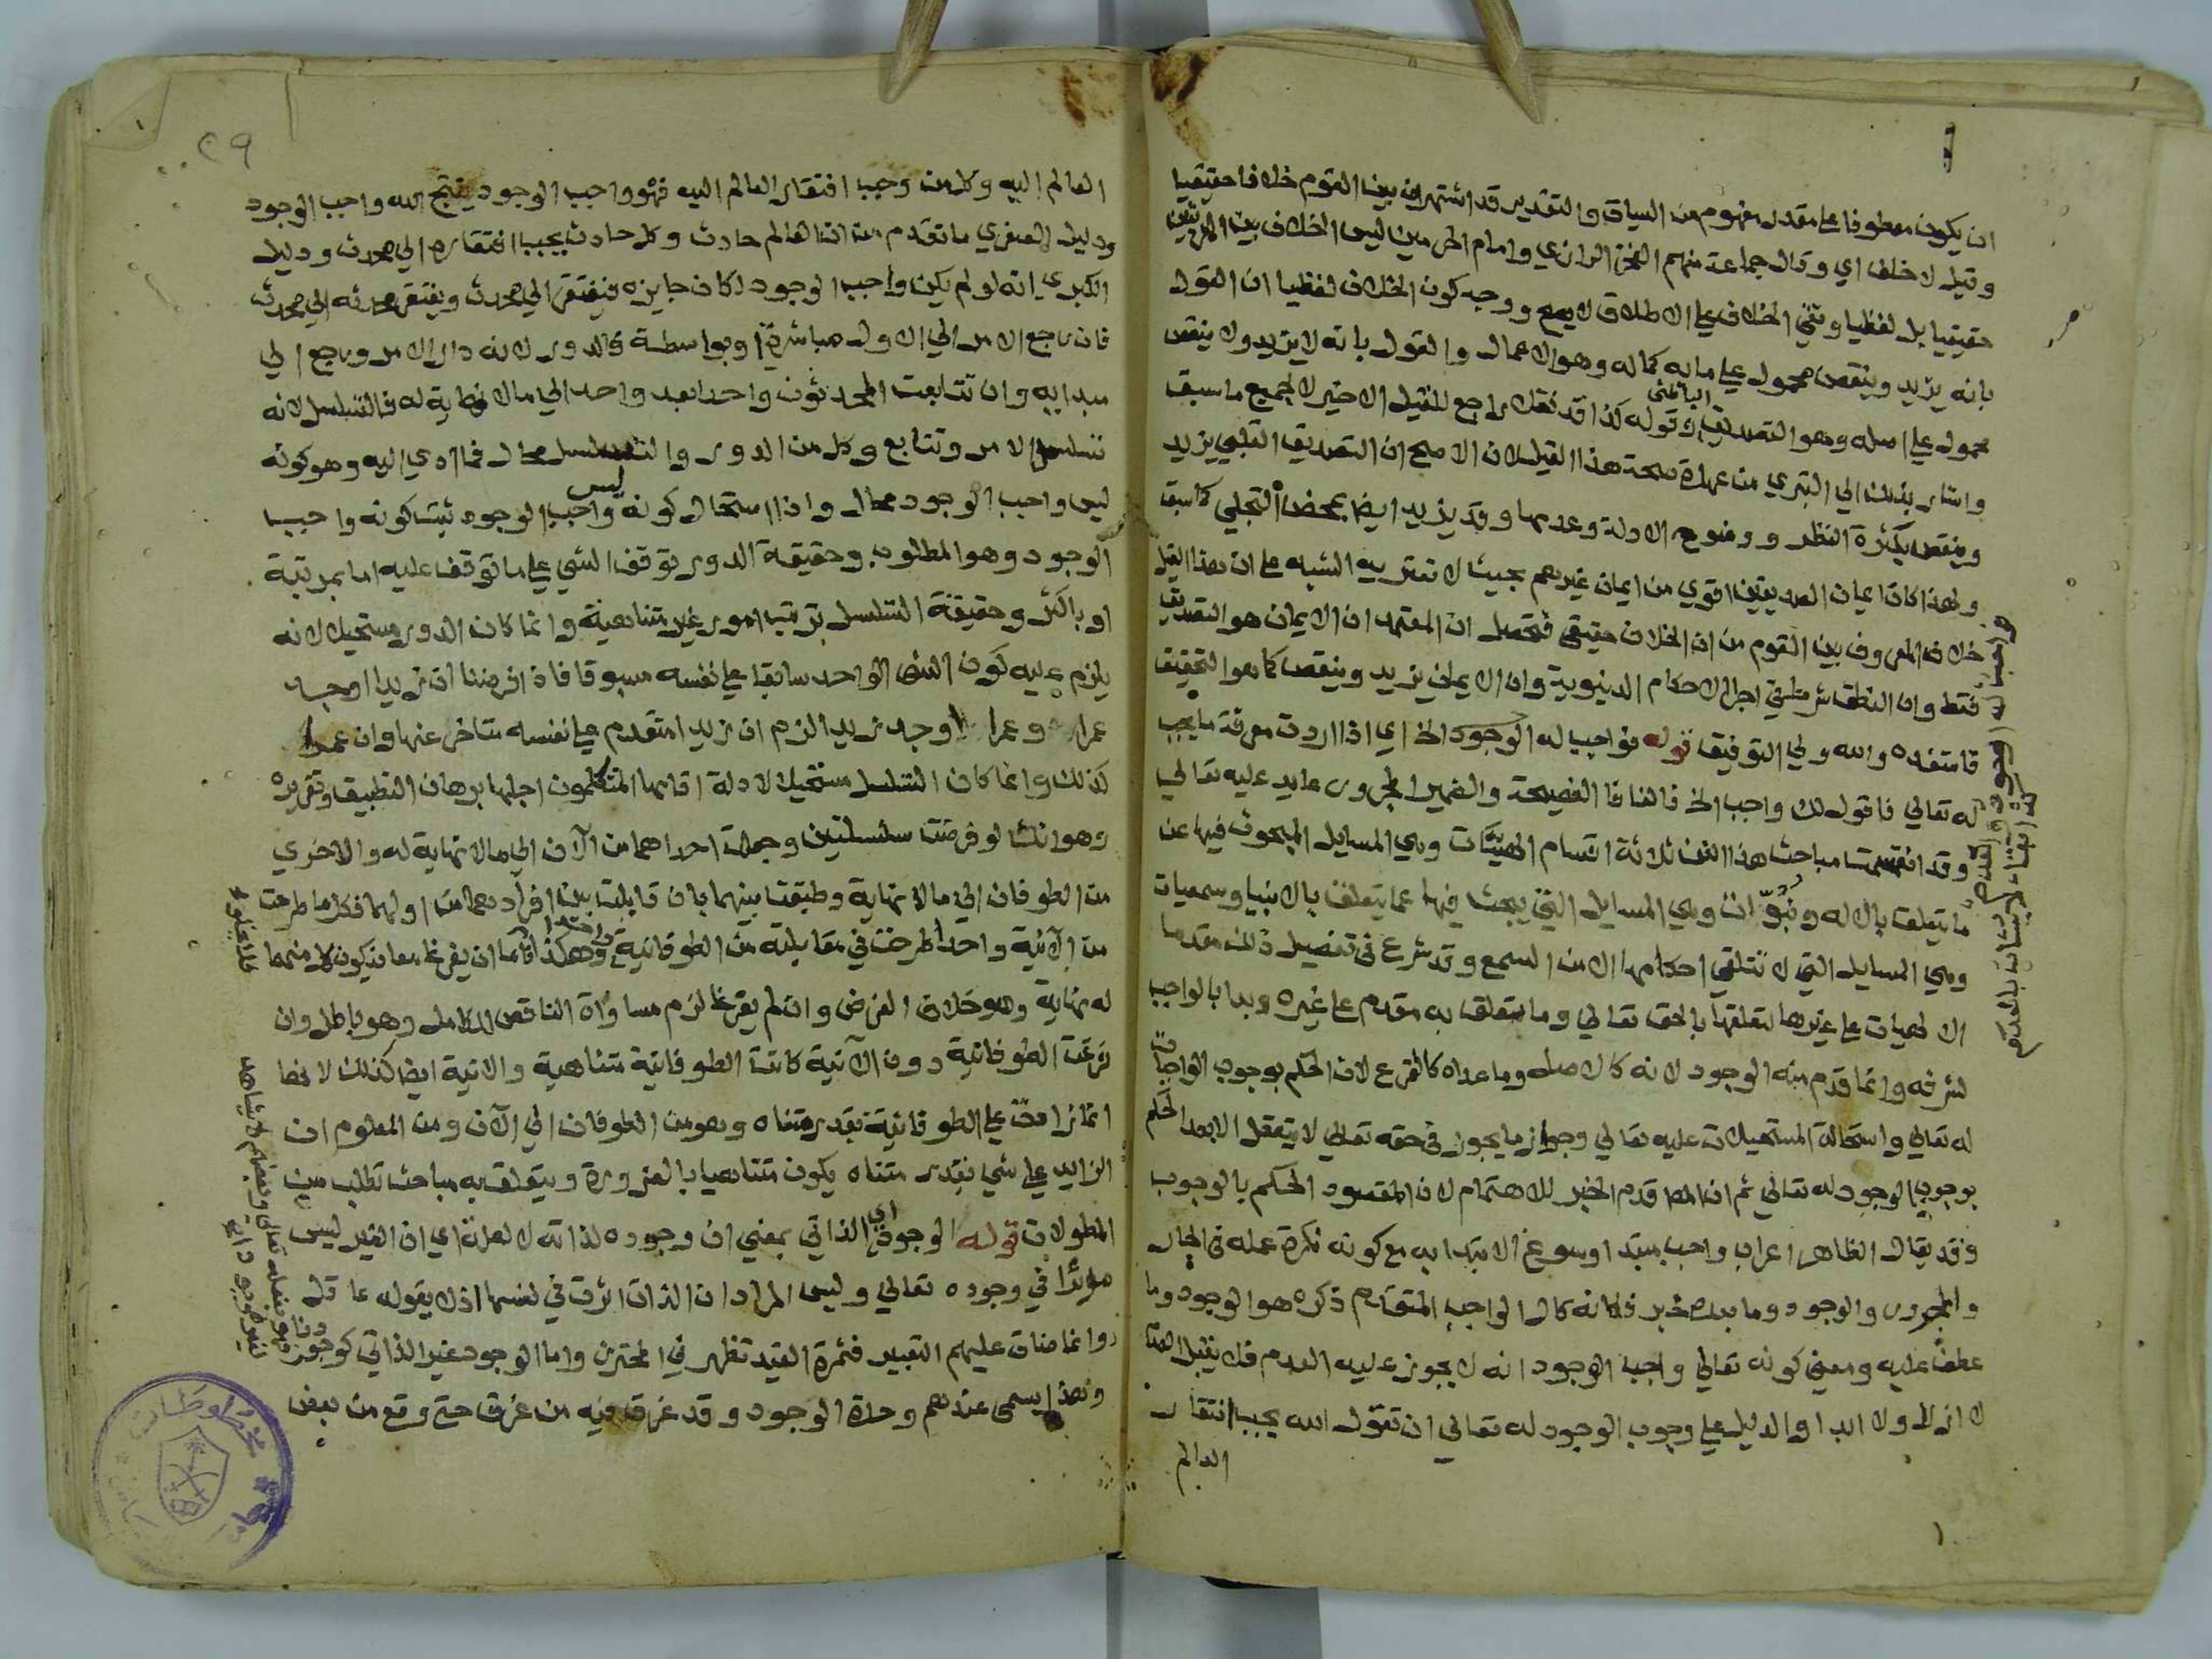 ان يكون معطوفا على مقدر مفهوم من السياق والتقدير قد اشتهر ان بين القوم خلافا حقيقيا
وقيل لا خلف اي وقال جماعة منهم الفخر الرازي وامام الحرمين ليس الخلاف بين الفريقين
حقيقيا بل لفظيا ونفي الخلاف على الاطلاق لا يصح ووجه كون الخلاف لفظيا ان القول
بانه يزيد وينقص محمول على ما به كماله وهو الاعمال والقول بانه لا يزيد ولا ينقص
محمول على اصله وهو التصديق الباطني وقوله كذا قد نقلا راجع للقيل الاخير لا لجميع ما سبق
واشار بذلك الى التبري من عهدة صحة هذا القيل لان الاصح ان التصديق القلبي يزيد
وينقص بكثرة النظر ووضوح الادلة وعدمها وقد يزيد ايضا بمحض التجلي كما سبق
ولهذا كان ايمان الصديقين اقوي من ايمان غيرهم بحيث لا تعتريه الشبه على ان هذا القيل
خلاف المعروف بين القوم من ان الخلاف حقيقي فتحصل ان المعتمد ان الايمان هو التصديق
فقط وان النطق شرط في اجرا الاحكام الدنيوية وان الايمان يزيد وينقص كما هو التحقيق
فاستفده والله ولي التوفيق قوله فواجب له الوجود الخ اي اذا اردت معرفة ما يجب
له تعالي فاقول لك واجب الخ فالفا فا الفصيحة والضمير المجرور عايد عليه تعالي
وقد انقسمت مباحث هذا الفن ثلاثة اقسام الهيئات وهي المسايل المبحوث فيها عن
ما يتعلق بالاله ونبوات وهي المسايل التي يبحث فيها عما يتعلق بالانبيا وسمعيات
وهي المسايل التي لا تتلقي احكامها الا من السمع وقد شرع في تفصيل ذلك مقدما
الالهيات على غيرها لتعلقها بالحق تعالي وما يتعلق به مقدم على غيره وبدا بالواجب
لشرفه وانما قدم منه الوجود لانه كالاصل وما عداه كالفرع لان الحكم بوجوب الواجبات
له تعالي واستحالة المستحيلات عليه تعالي وجواز ما يجوز في حقه تعالي لا يتعقل الا بعد الحكم
بوجوب الوجود له تعالي ثم ان المص قدم الخبر للاهتمام لان المقصود الحكم بالوجوب
وقد يقال الظاهر اعراب واجب مبتدا وسوغ الابتدا به مع كونه نكرة عمله في الجار
والمجرور والوجود وما بعده خبر فكانه قال الواجب المتقدم ذكره هو الوجود وما
عطف عليه ومعني كونه تعالي واجب الوجود انه لا يجوز عليه العدم فلا يقبل
لا ازلا ولا ابدا والدليل على وجوب الوجود له تعالي ان تقول الله يجب افتقار
العالم
٢٩
العالم اليه وكل من وجب افتقار العالم اليه فهو واجب الوجود ينتج الله واجب الوجود
ودليل الصغري ما تقدم من ان العالم حادث وكل حادث يجب افتقاره الي محدث ودليل
الكبري انه لو لم يكن واجب الوجود لكان جايزه فيفتقر الي محدث ويفتقر محدثه الي محدث
فان رجع الامر الي الاول مباشرة او بواسطة فالدور لانه دار الامر ورجع الي
مبدايه وان تتابعت المحدثون واحدا بعد واحد الي ما لا نهاية له فالتسلسل لانه
تسلسل الامر وتتابع وكل من الدور والتسلسل محال فما ادي اليه وهو كونه
ليس واجب الوجود محال واذا استحال كونه ليس واجب الوجود ثبت كونه واجب
الوجود وهو المطلوب وحقيقة الدور توقف الشي على ما توقف عليه اما بمرتبة
او باكثر وحقيقة التسلسل ترتب امور غير متناهية وانما كان الدور مستحيلا لانه
يلزم عليه كون الشي الواحد سابقا على نفسه مسبوقا فاذا فرضنا ان زيدا اوجد
عمرا وعمرا اوجد زيدا لزم ان زيدا متقدم على نفسه متاخر عنها وان عمرا
كذلك وانما كان التسلسل مستحيلا لادلة اقامها المتكلمون اجلها برهان التطبيق وتقريره
وهو انك لو فرضت سلسلتين وجعلت احداهما من الآن الي ما لا نهاية له والاخري
من الطوفان الي ما لا نهاية وطبقت بينهما بان قابلت بين افرادهما من اولهما فكلما طرحت
من الآنية واحدا طرحت في مقابلته من الطوفانية واحدا وهكذا فلا يخلو اما ان يفرغا معا فيكون كل منهما
له نهاية وهو خلاف الفرض وان لم يفرغا لزم مساواة الناقص للكامل وهو باطل وان
فرغت الطوفانية دون الآنية كانت الطوفانية متناهية والانية ايضا كذلك لانها
انما زادت على الطوفانية بقدر متناه وهو من الطوفان الي الآن ومن المعلوم ان
الزايد على شي بقدر متناه يكون متناهيا بالضرورة ويتعلق به مباحث تطلب من
المطولات قوله الوجود اي الذاتي بمعني ان وجوده لذاته لا لعلة اي ان الغير ليس
مؤثرا في وجوده تعالي وليس المراد ان الذات اثرت في نفسها اذ لا يقوله عاقل
وانما ضاق عليهم التعبير فثمرة القيد تظهر في المحترز واما الوجود غير الذاتي كوجودنا
وهذا يسمى عندهم وحدة الوجود وقد غرق فيه من غرق حتي وقع من بعض